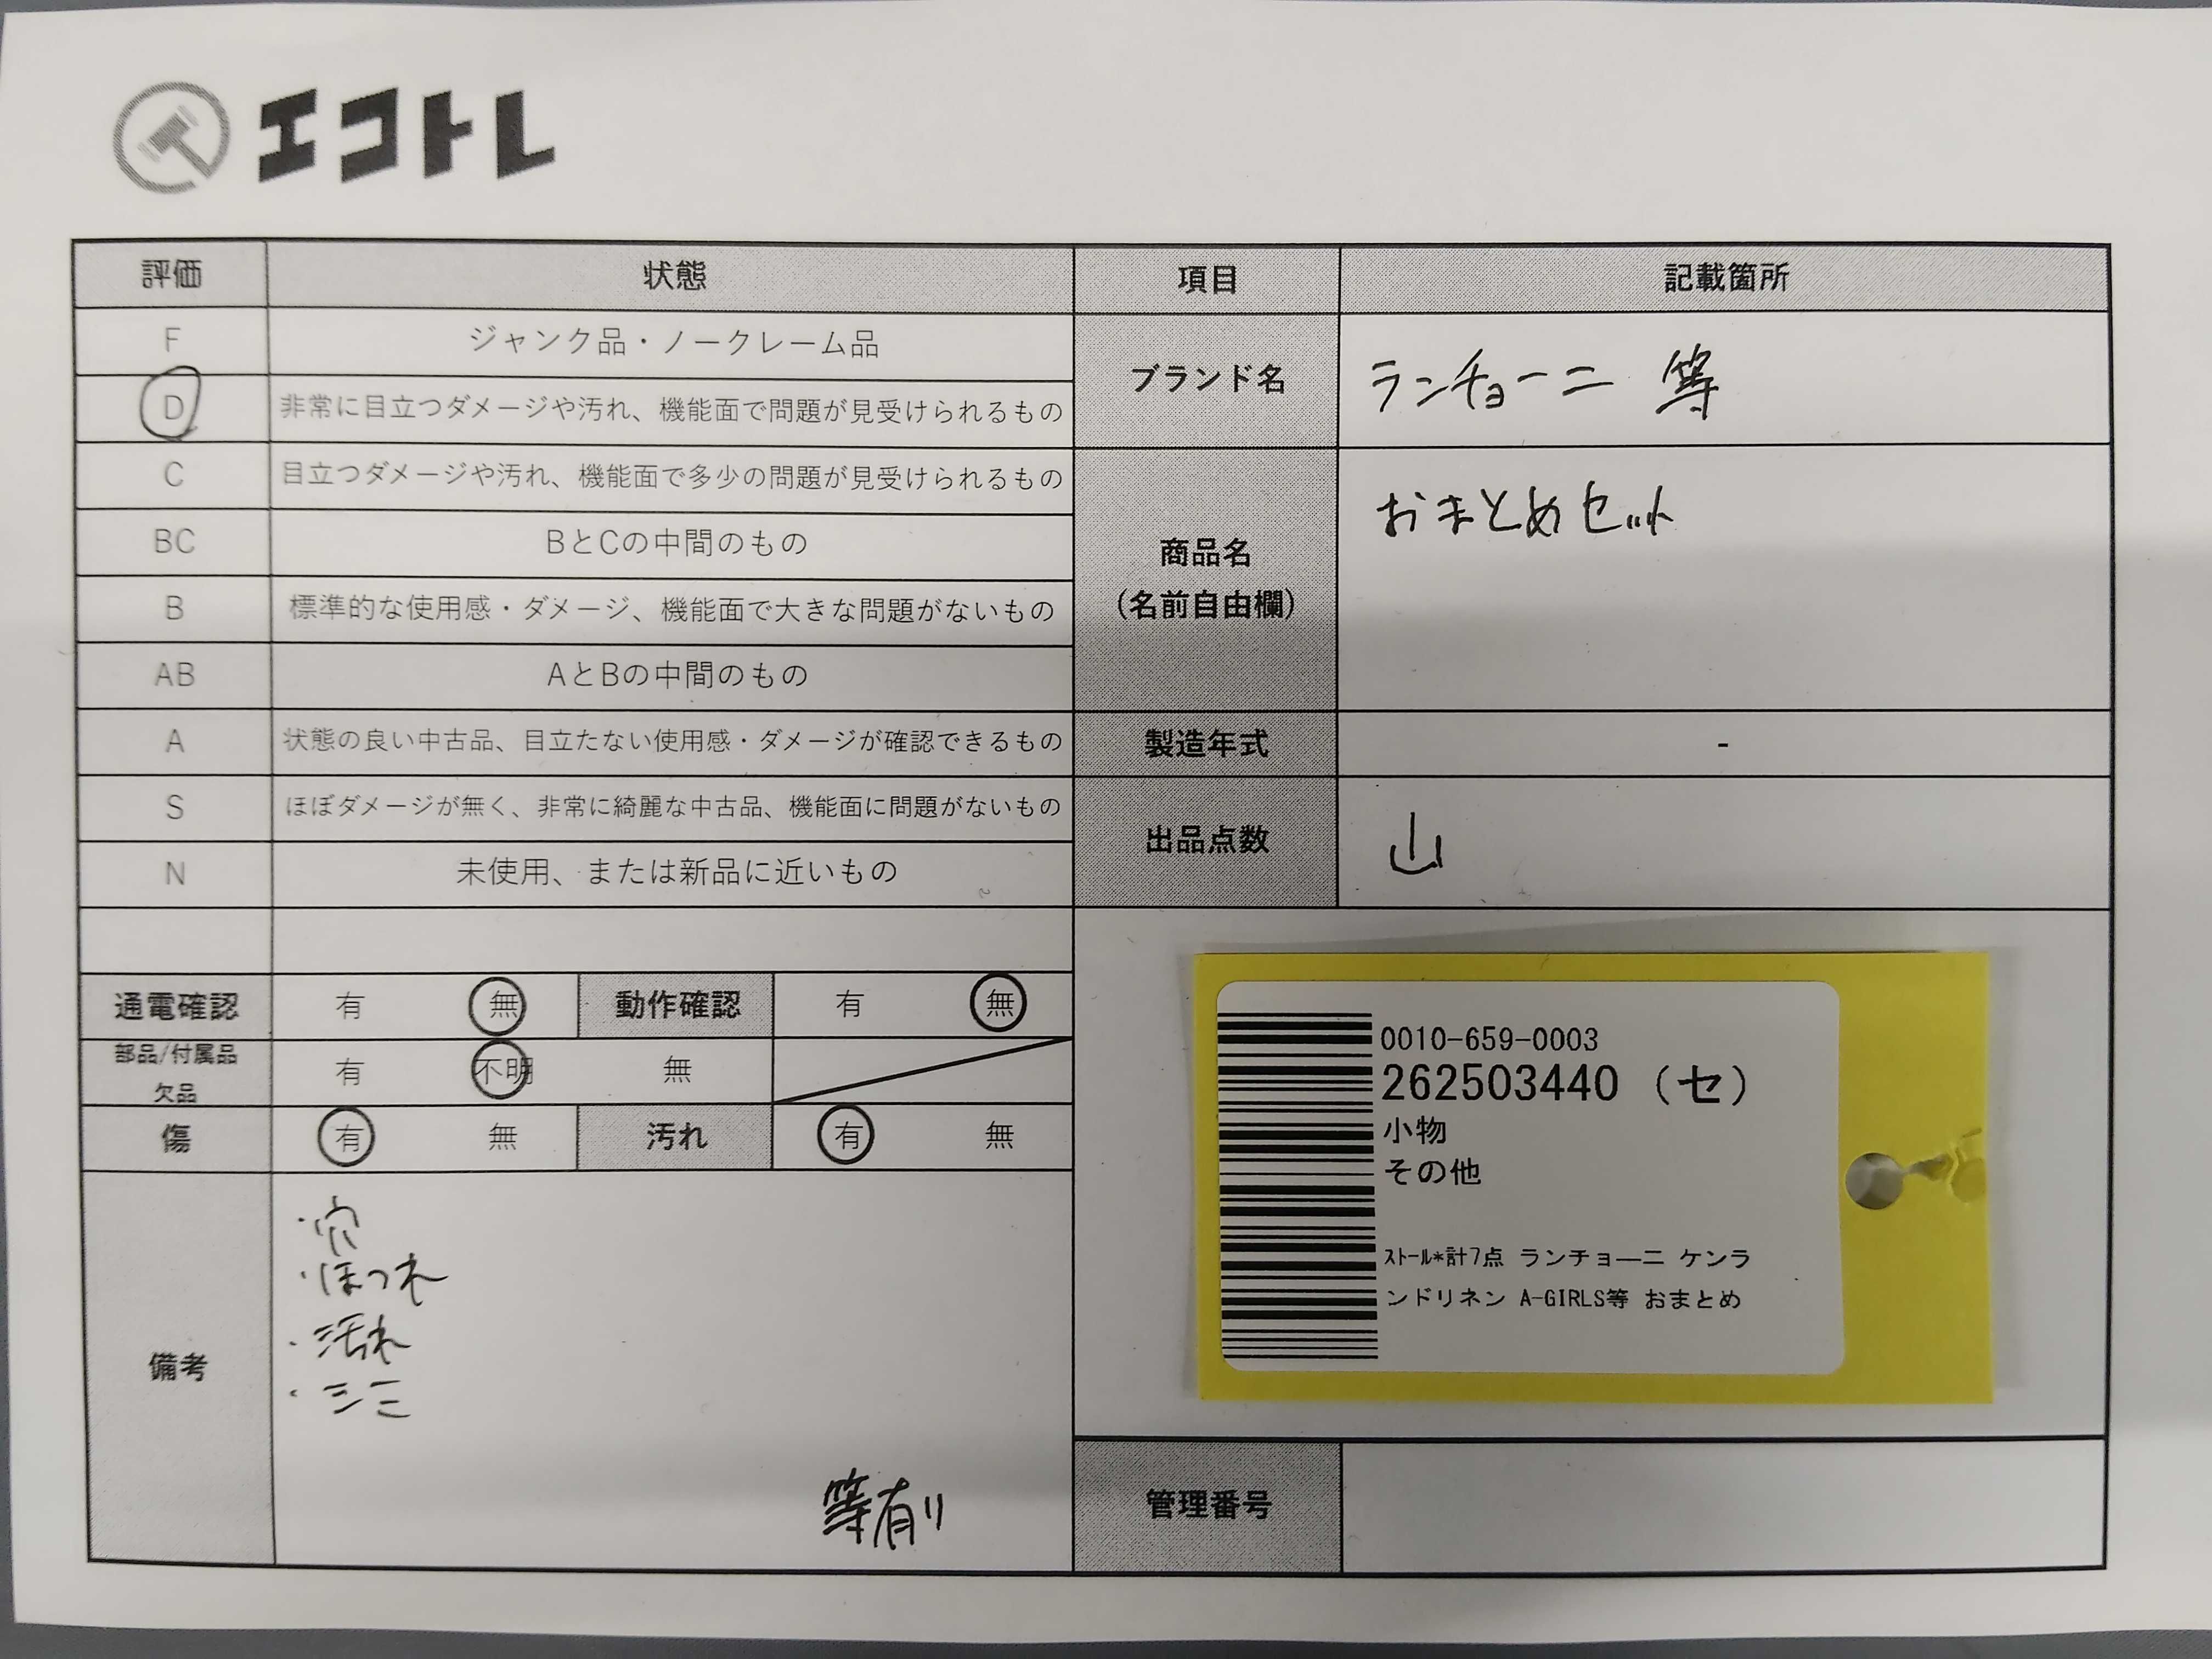 エコトレ
評価 状態 項目 記載箇所
F ジャンク品・ノークレーム品
D 非常に目立つダメージや汚れ、機能面で問題が見受けられるもの
C 目立つダメージや汚れ、機能面で多少の問題が見受けられるもの
BC BとCの中間のもの
B 標準的な使用感・ダメージ、機能面で大きな問題がないもの
AB AとBの中間のもの
A 状態の良い中古品、目立たない使用感・ダメージが確認できるもの
S ほぼダメージが無く、非常に綺麗な中古品、機能面に問題がないもの
N 未使用、または新品に近いもの
ブランド名 ランチョーニ 等
商品名
(名前自由欄)
おまとめセット
製造年式 -
出品点数 山
通電確認 有 無 動作確認 有 無
部品/付属品
欠品
有 不明 無
傷 有 無 汚れ 有 無
備考
・穴
・ほつれ
・汚れ
・シミ
等有り
0010-659-0003
262503440 (セ)
小物
その他
ｽﾄｰﾙ*計7点 ランチョーニ ケンラ
ンドリネン A-GIRLS等 おまとめ
管理番号